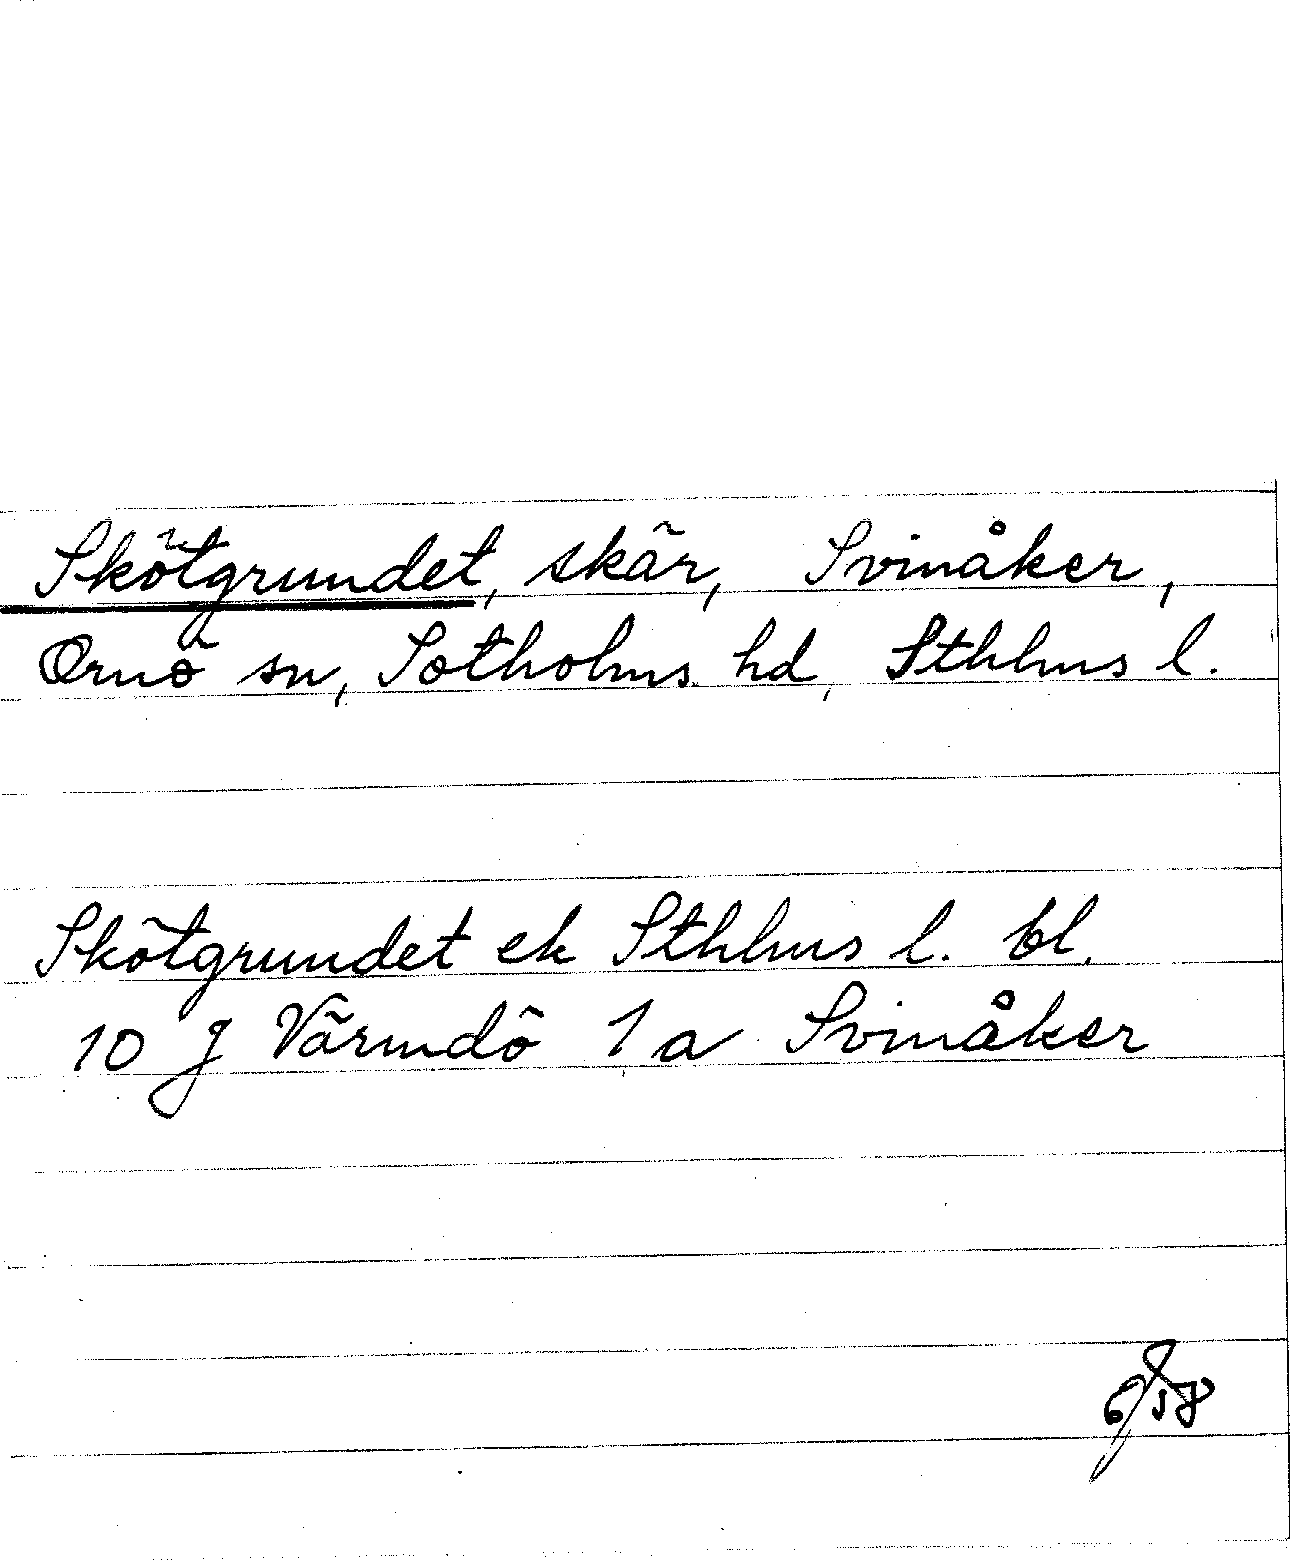 Skötgrundet, skär, Svinåker,
Ornö sn, Sotholms hd, Sthlms l.
Skötgrundet ek Sthlms l. bl.
10 J Värmdö 1 a Svinåker